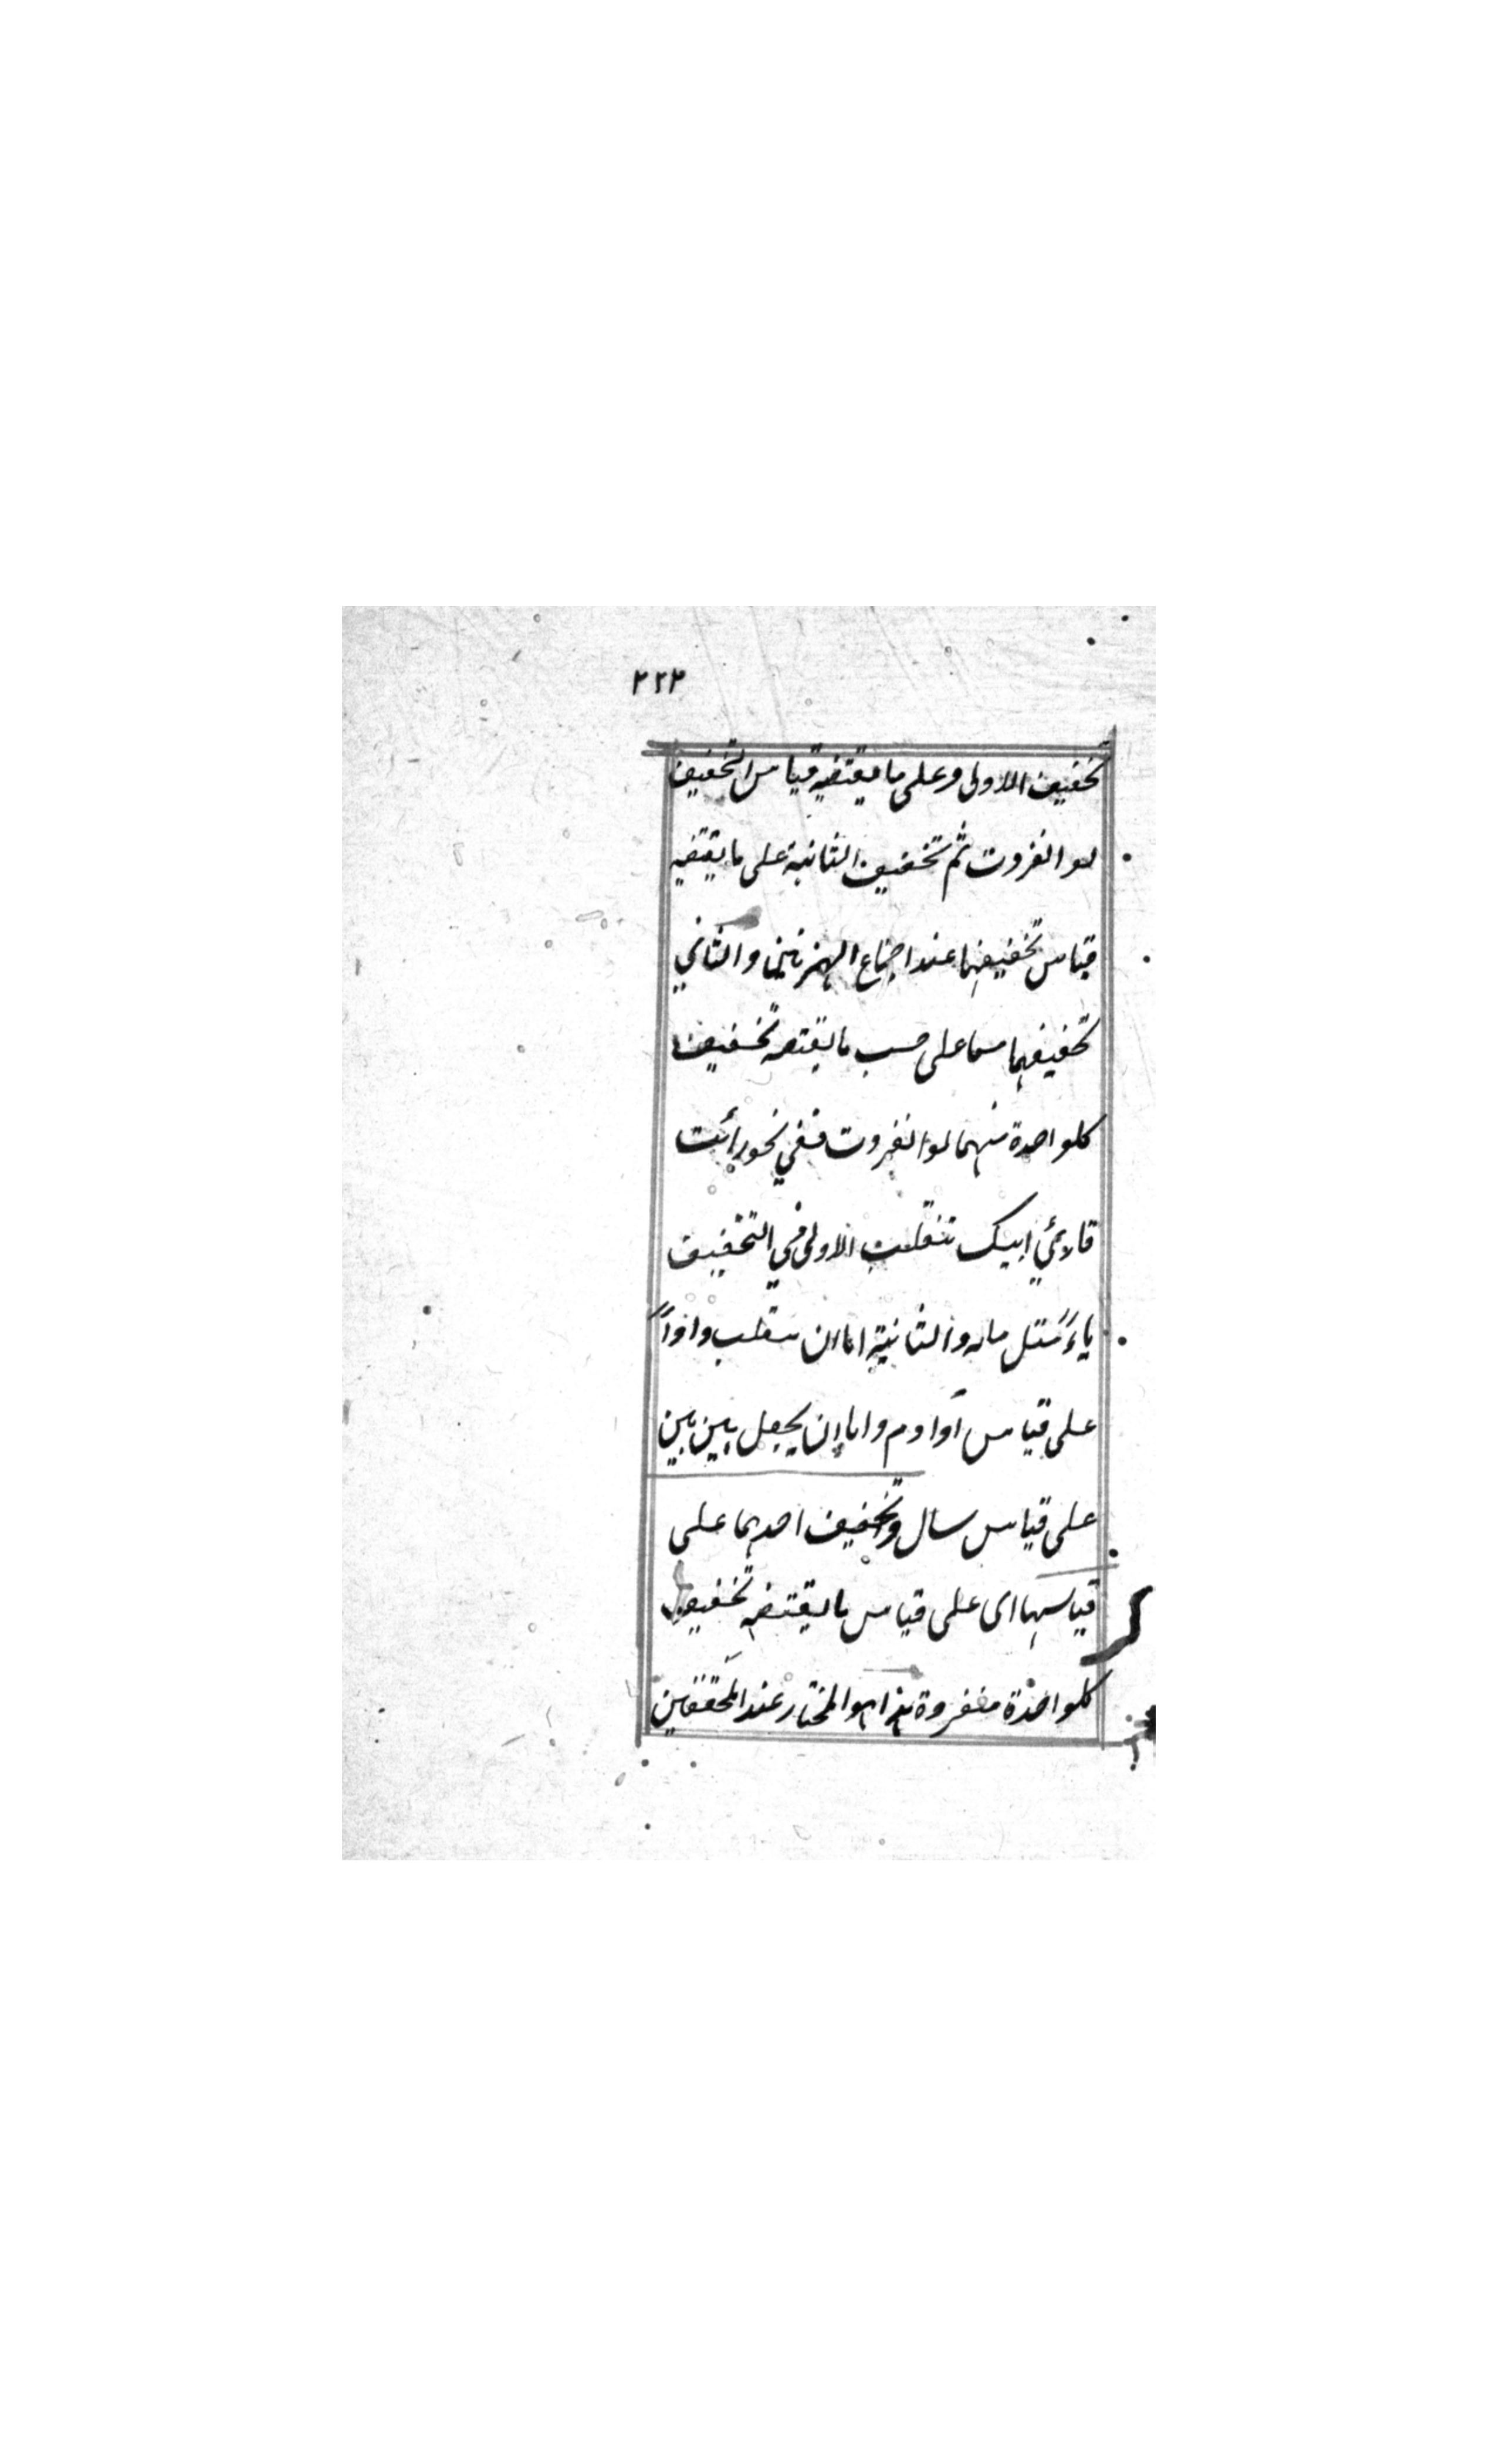 ٢٢٢
تخفيف الاولى وعلى ما يقتضيه قياس التخفيف
لو انفردت ثم تخفيف الثانية على ما يقتضيه
قياس تخفيفها عند اجتماع الهمزتين والثاني
تخفيفهما معا على حسب ما يقتضيه تخفيف
كلواحدة منهما لو انفردت ففي نحو رأيت
قارئي ابيك تنقلب الاولى في التخفيف
ياءً مثل مايه والثانية اما ان تنقلب واواً
على قياس اوادم واما ان يجعل بين بين
على قياس سال وتخفيف احديهما على
قياسها اى على قياس ما يقتضيه تخفيف
كلواحدة منفردة هذا هو المختار عند المحققين